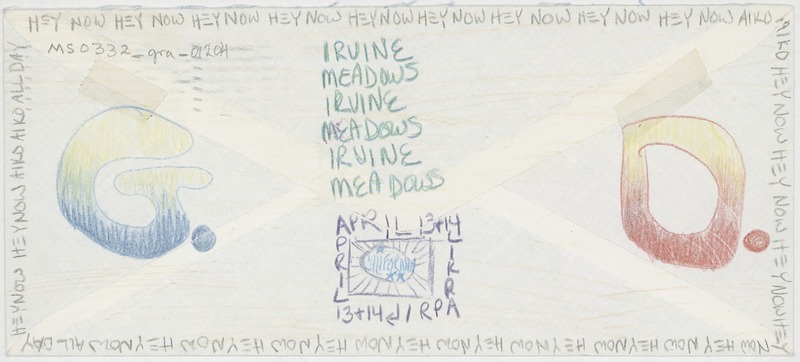 HEY NOW HEY NOW HEY NOW HEY NOW HEY NOW HEY NOW HEY NOW HEY NOW AIKO
MS0332_gra_01204
IRVINE
MEADOWS
IRVINE
MEADOWS
IRVINE
MEADOWS
G.
D.
APRIL 13+14
APRIL
CALIFORNIA
APRIL
13+14
APRIL
AIKO HEY NOW HEY NOW HEY NOW HEY NOW HEY
HEY NOW HEY NOW AIKO AIKO ALL DAY
NOW HEY NOW HEY NOW HEY NOW HEY NOW HEY NOW HEY NOW HEY NOW ALL DAY